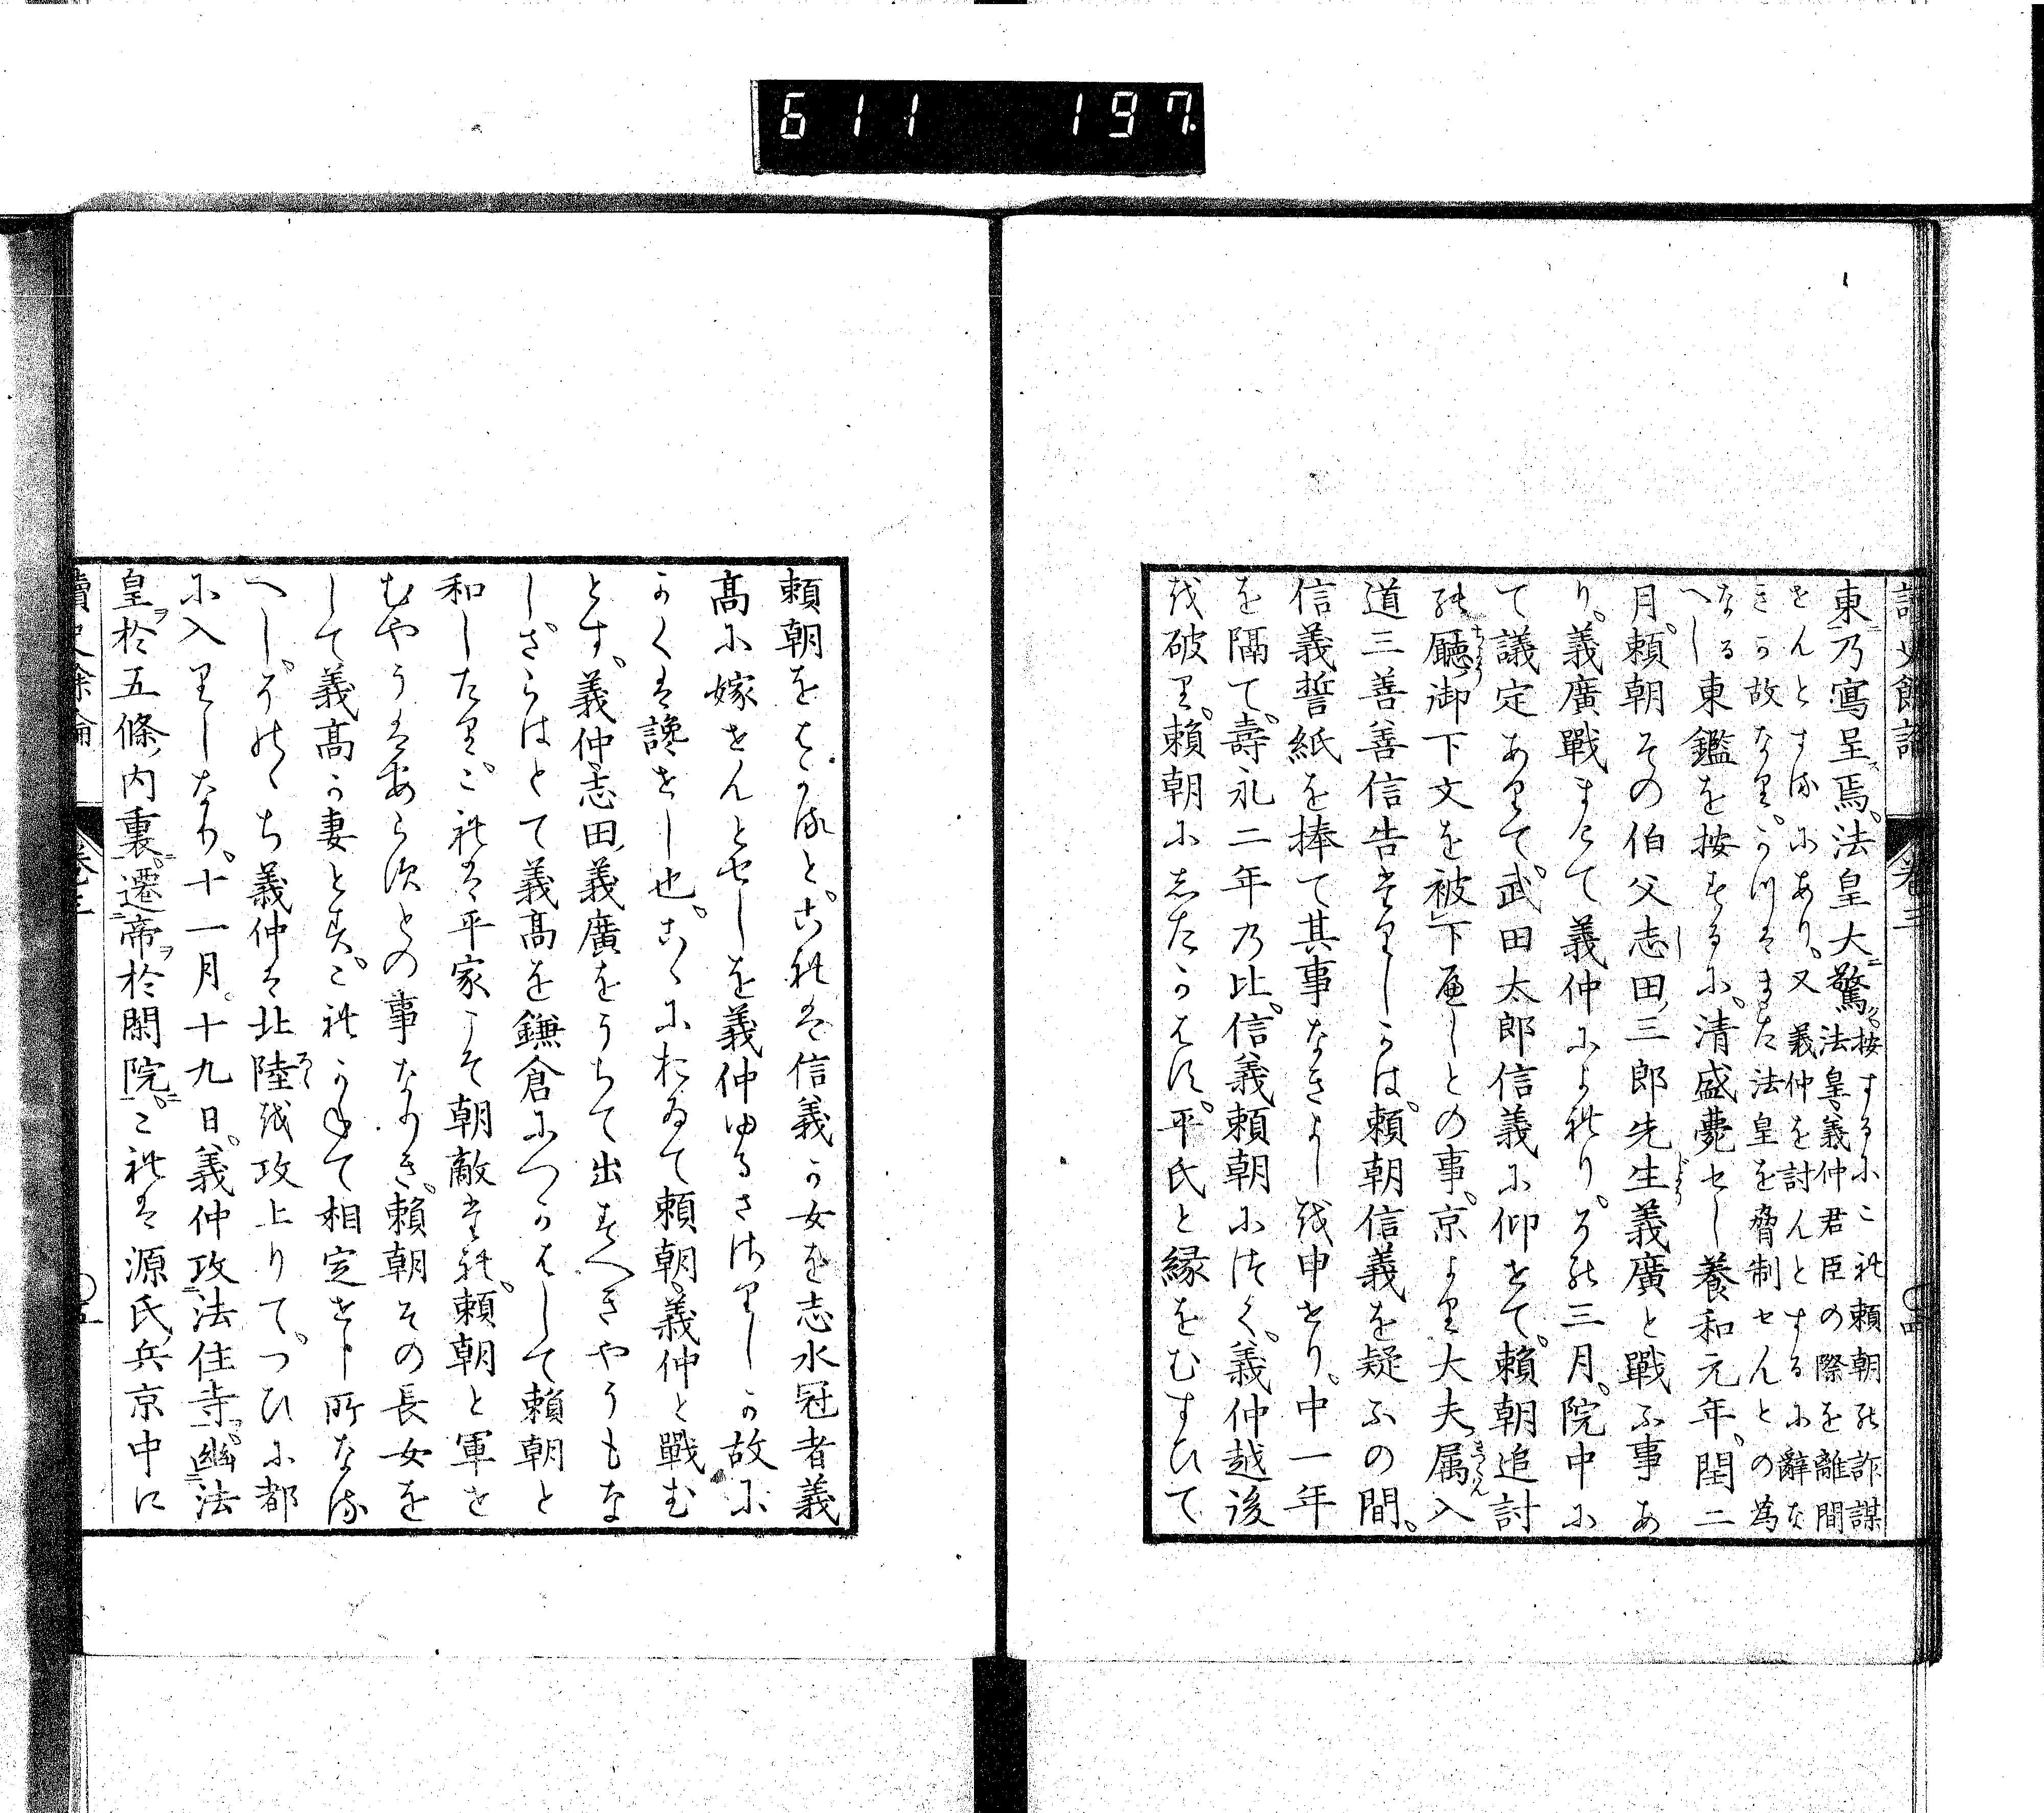 611 197
東乃寫呈焉。法皇大驚。按するにこれ頼朝の詐謀
法皇義仲君臣の際を離間
せんとするにあり。又義仲を討んとするに辭な
きか故なり。かつはまた法皇を脅制せんとの為
なるへし
東鑑を按するに。清盛薨せし養和元年。閏二
月。頼朝その伯父志田三郎先生義廣と戰ふ事あ
り。義廣戰まけて義仲によれり。その三月。院中に
て議定ありて。武田太郎信義に仰せて。頼朝追討
の廳御下文を被下へしとの事。京より大夫属入
道三善善信告たりしかは。頼朝信義を疑ふの間。
信義誓紙を捧て其事なきよしを申せり。中一年
を隔て。壽永二年の比。信義頼朝につく。義仲越後
を破り。頼朝にしたかはす。平氏と縁をむすひて
頼朝をはかると。これは信義か女を志水冠者義
髙に嫁せんとせしを義仲ゆるさゝりしか故に
かくは讒せし也。こゝにおゐて頼朝。義仲と戰む
とす。義仲。志田義廣をうちて出すへきやうもな
しさらはとて義髙を鎌倉につかはして頼朝と
和したり。これは平家こそ朝敵たれ。頼朝と軍せ
むやうはあらすとの事なりき。頼朝その長女を
して義髙か妻とす。これかねて相定せし所なる
へし。そのゝち義仲は北陸を攻上りて。つひに都
に入りしなり。十一月。十九日。義仲攻法住寺。幽法
皇於五條内裏。遷帝於閑院。これは源氏兵京中に
讀史餘論 卷三 〇五